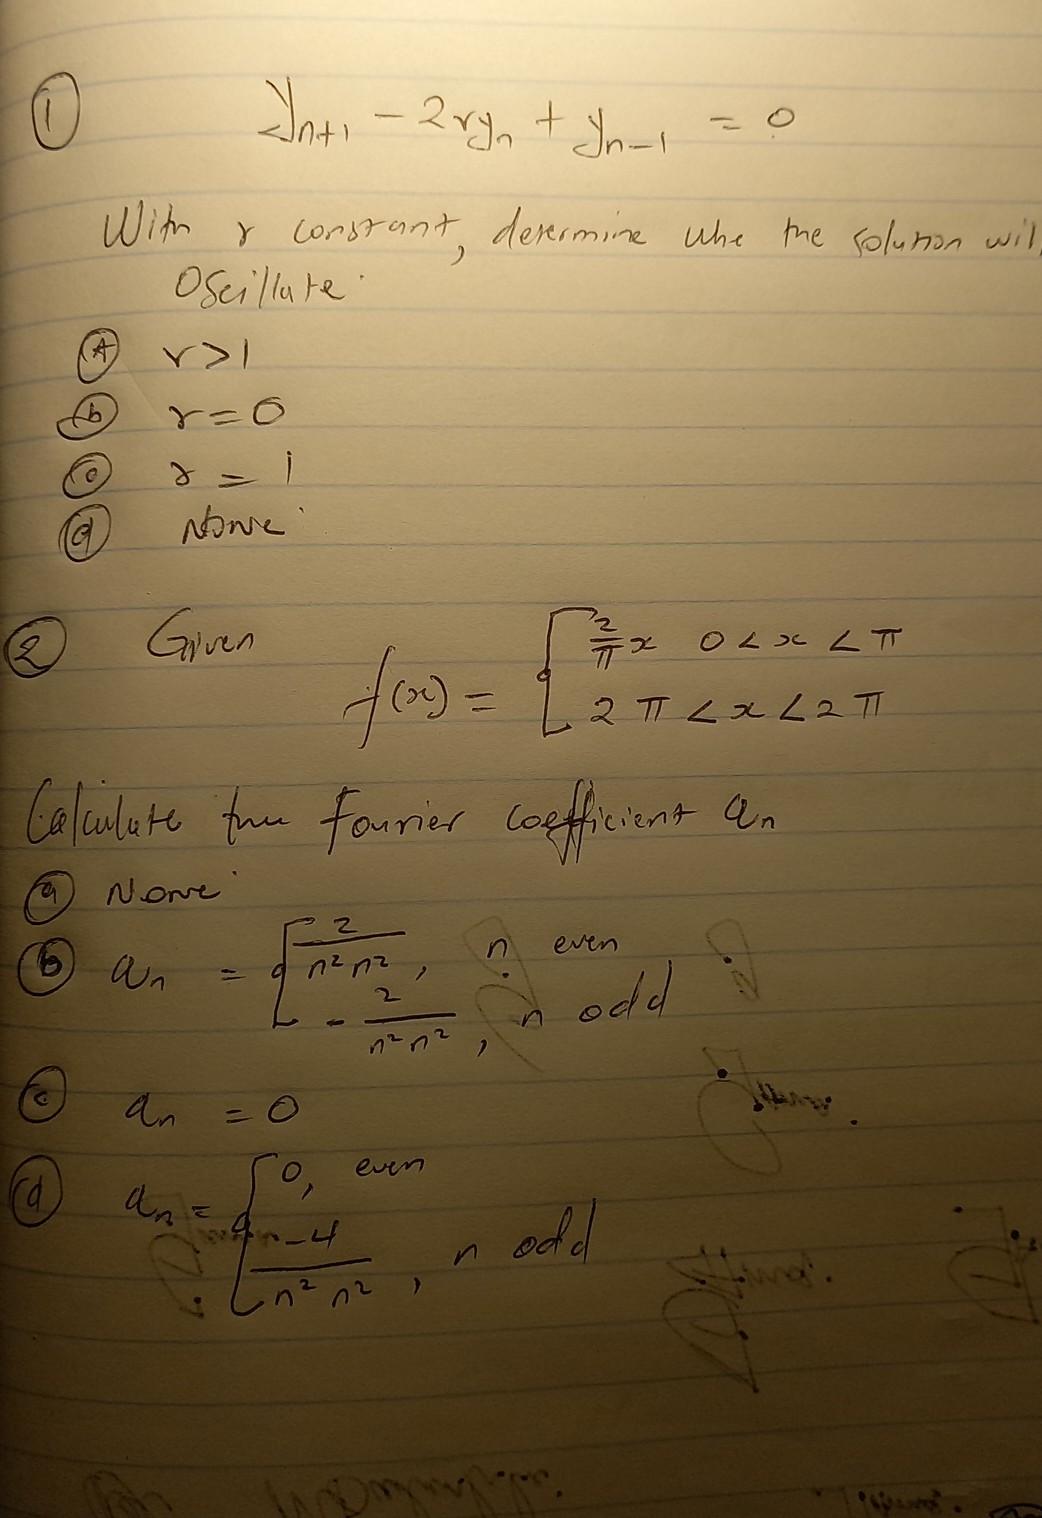 ① yₙ₊₁ - 2ryₙ + yₙ₋₁ = 0
With r constant, determine whe the solution wil
Oscillate.
Ⓐ r>1
ⓑ r=0
ⓒ r = 1
ⓓ None
② Given
f(x) = [ 2/π x 0 < x < π
2 π < x < 2π
Calculate the Fourier coefficient aₙ
ⓐ None
ⓑ aₙ = [ 2/n²n², n even
- 2/n²n², n odd
ⓒ aₙ = 0
ⓓ aₙ = [ 0, even
-4/n²n², n odd